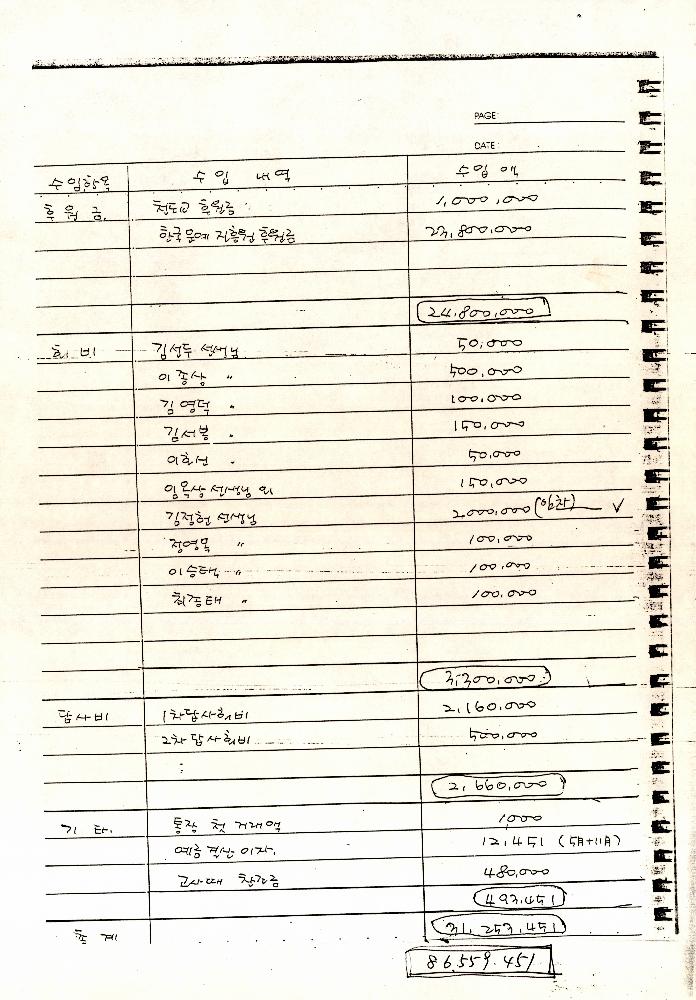 PAGE:
DATE:
수입항목 수입 내역 수입액
후원금. 천도교 후원금 1,000,000
한국문예진흥원 후원금 23,800,000
24,800,000
회비 김선두 선생님 50,000
이종상 〃 500,000
김영덕 〃 100,000
김서봉 〃 150,000
이희선 〃 50,000
임옥상 선생님 외 150,000
김정헌 선생님 2,000,000 (입찬) ✓
정영목 〃 100,000
이승택 〃 100,000
최종태 〃 100,000
3,300,000
답사비 1차답사회비 2,160,000
2차답사회비 500,000
:
2,660,000
기타. 통장 첫 거래액 1,000
예금결산이자. 12,451 (5月+11月)
고사때 찬조금 480,000
493,451
총계 31,253,451
86,559,451